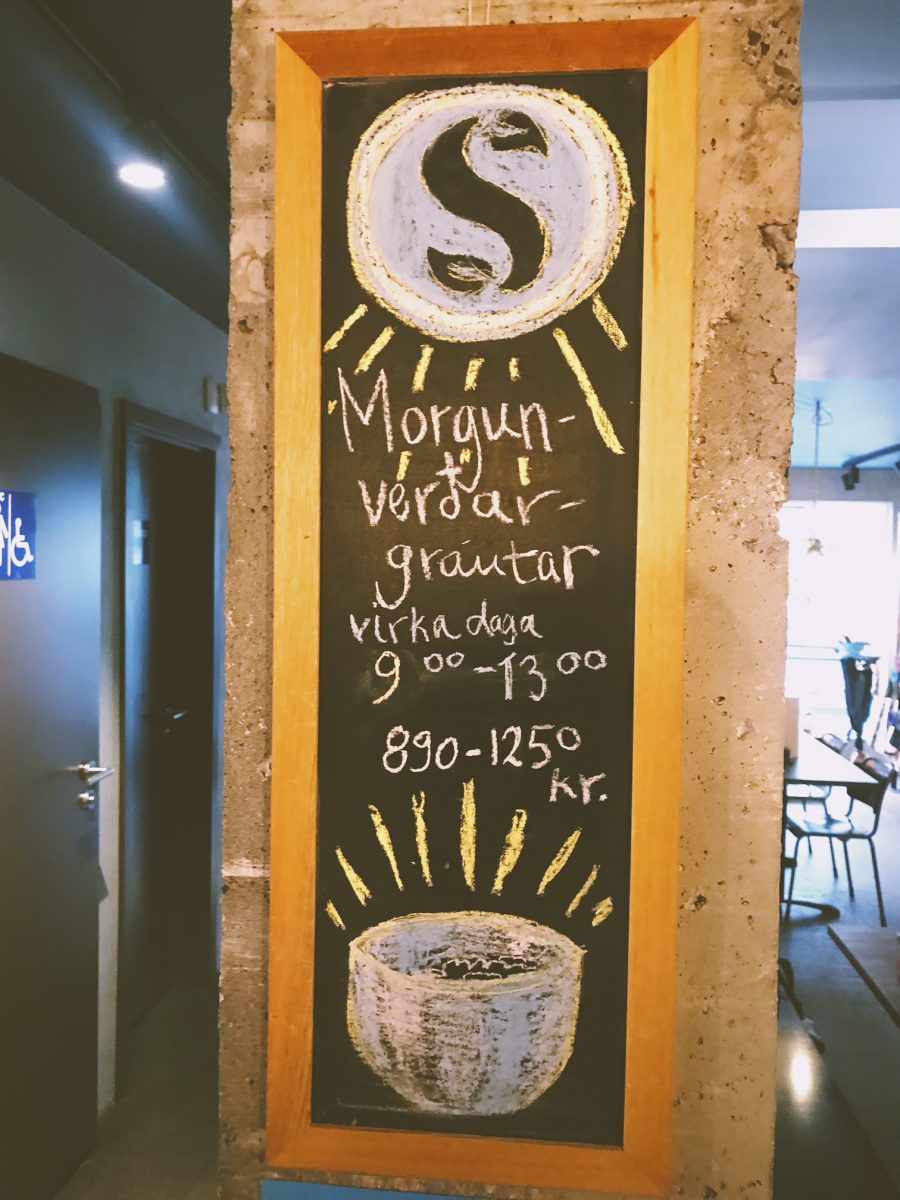 S
Morgun-
verðar-
grautar
virka daga
9⁰⁰-13⁰⁰
890-1250
kr.